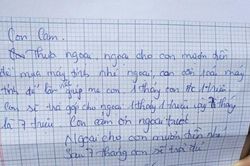 Con Cam.
Thưa ngoại, ngoại cho con mượn tiền
để mua máy tính nhé ngoại, con cần loại máy
tính để làm giúp mẹ con 1 tháng 1 triệu
con sẽ trả góp cho ngoại 1 tháng 1 triệu 7 tháng
là 7 triệu. Con cảm ơn ngoại trước
Ngoại cho con mượn tiền nhé
sau 7 tháng con sẽ trả đủ